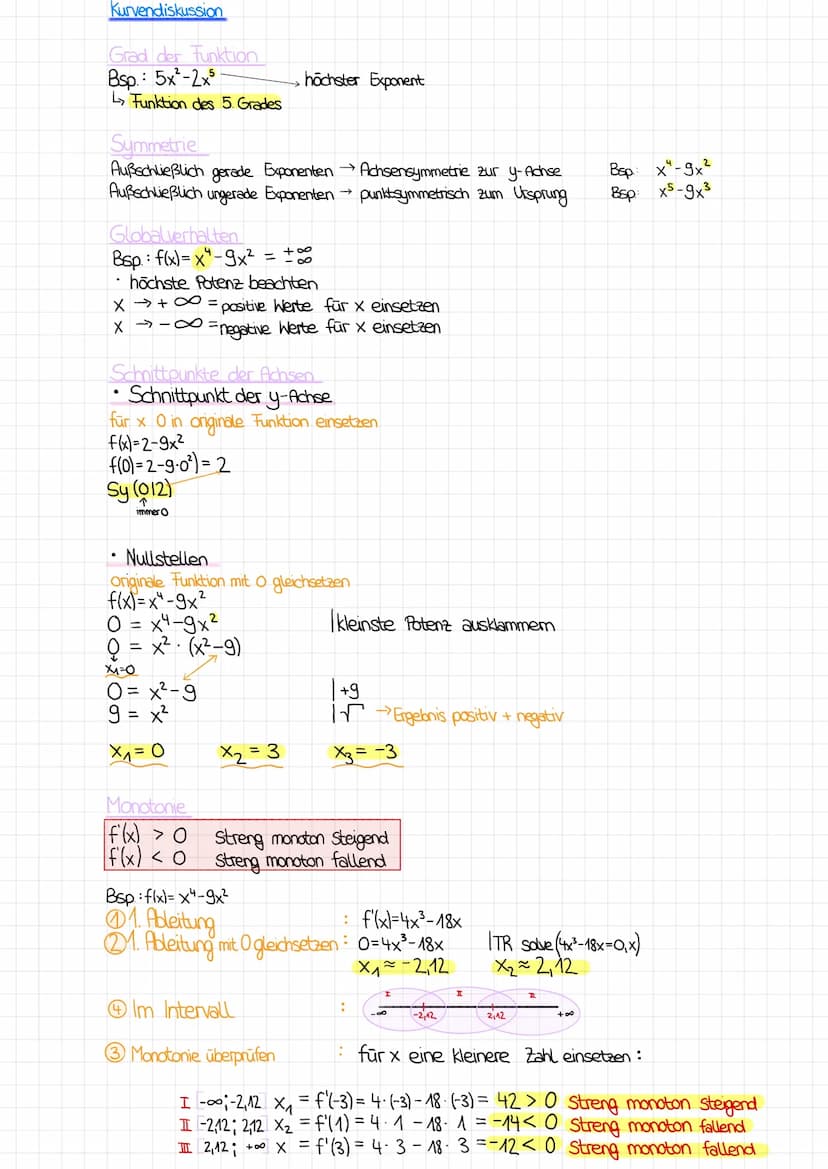 Kurvendiskussion
Grad der Funktion
Bsp.: 5x²-2x⁵ → höchster Exponent
↳ Funktion des 5. Grades
Symmetrie
Außschließlich gerade Exponenten → Achsensymmetrie zur y-Achse Bsp: x⁴-9x²
Außschließlich ungerade Exponenten → punktsymmetrisch zum Ursprung Bsp: x⁵-9x³
Globalverhalten
Bsp.: f(x)= x⁴-9x² = +∞ -∞
· höchste Potenz beachten
x → + ∞ = positive Werte für x einsetzen
x → - ∞ = negative Werte für x einsetzen
Schnittpunkte der Achsen
• Schnittpunkt der y-Achse
für x 0 in originale Funktion einsetzen
f(x)=2-9x²
f(0)=2-9·0²)= 2
Sy (0|2)
↑
immer 0
• Nullstellen
originale Funktion mit 0 gleichsetzen
f(x)=x⁴-9x²
0 = x⁴-9x² |kleinste Potenz ausklammern
0 = x² · (x²-9)
x₁=0
0 = x²-9 | +9
9 = x² | √ → Ergebnis positiv + negativ
x₁ = 0 x₂ = 3 x₃ = -3
Monotonie
f'(x) > 0 Streng monoton steigend
f'(x) < 0 Streng monoton fallend
Bsp.: f(x)= x⁴-9x²
① 1. Ableitung : f'(x)=4x³-18x
② 1. Ableitung mit 0 gleichsetzen : 0=4x³-18x |TR solve(4x³-18x=0,x)
x₁ ≈ -2,12 x₂ ≈ 2,12
I II III
④ Im Intervall :
-∞ -2,12 2,12 +∞
③ Monotonie überprüfen : für x eine kleinere Zahl einsetzen :
I [-∞;-2,12] x₁ = f'(-3)= 4·(-3)-18·(-3)= 42 > 0 Streng monoton steigend
II [-2,12; 2,12] x₂ = f'(1) = 4·1 -18·1 = -14 < 0 Streng monoton fallend
III [2,12; +∞] x = f'(3) = 4·3 -18·3 = -12 < 0 Streng monoton fallend